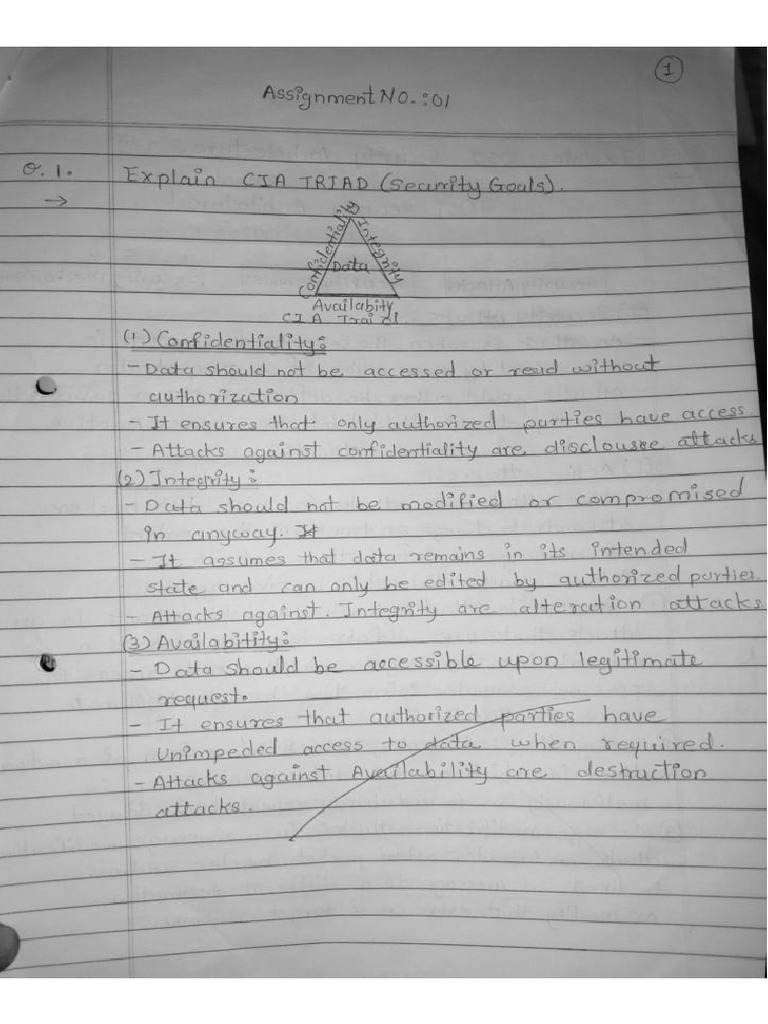 1
Assignment No.:01
Q.1. Explain CIA TRIAD (Security Goals).
→
Confidentiality
Integrity
Data
Availabity
CIA Traid
(1) Confidentiality:
- Data should not be accessed or read without
authorization
- It ensures that only authorized parties have access
- Attacks against confidentiality are disclousre attacks
(2) Integrity:
- Data should not be modified or compromised
in anyway. It
- It assumes that data remains in its intended
state and can only be edited by authorized parties
- Attacks against. Integrity are alteration attacks
(3) Availabitity:
- Data should be accessible upon legitimate
request.
- It ensures that authorized parties have
Unimpeded access to data when required.
- Attacks against Availability are destruction
attacks.